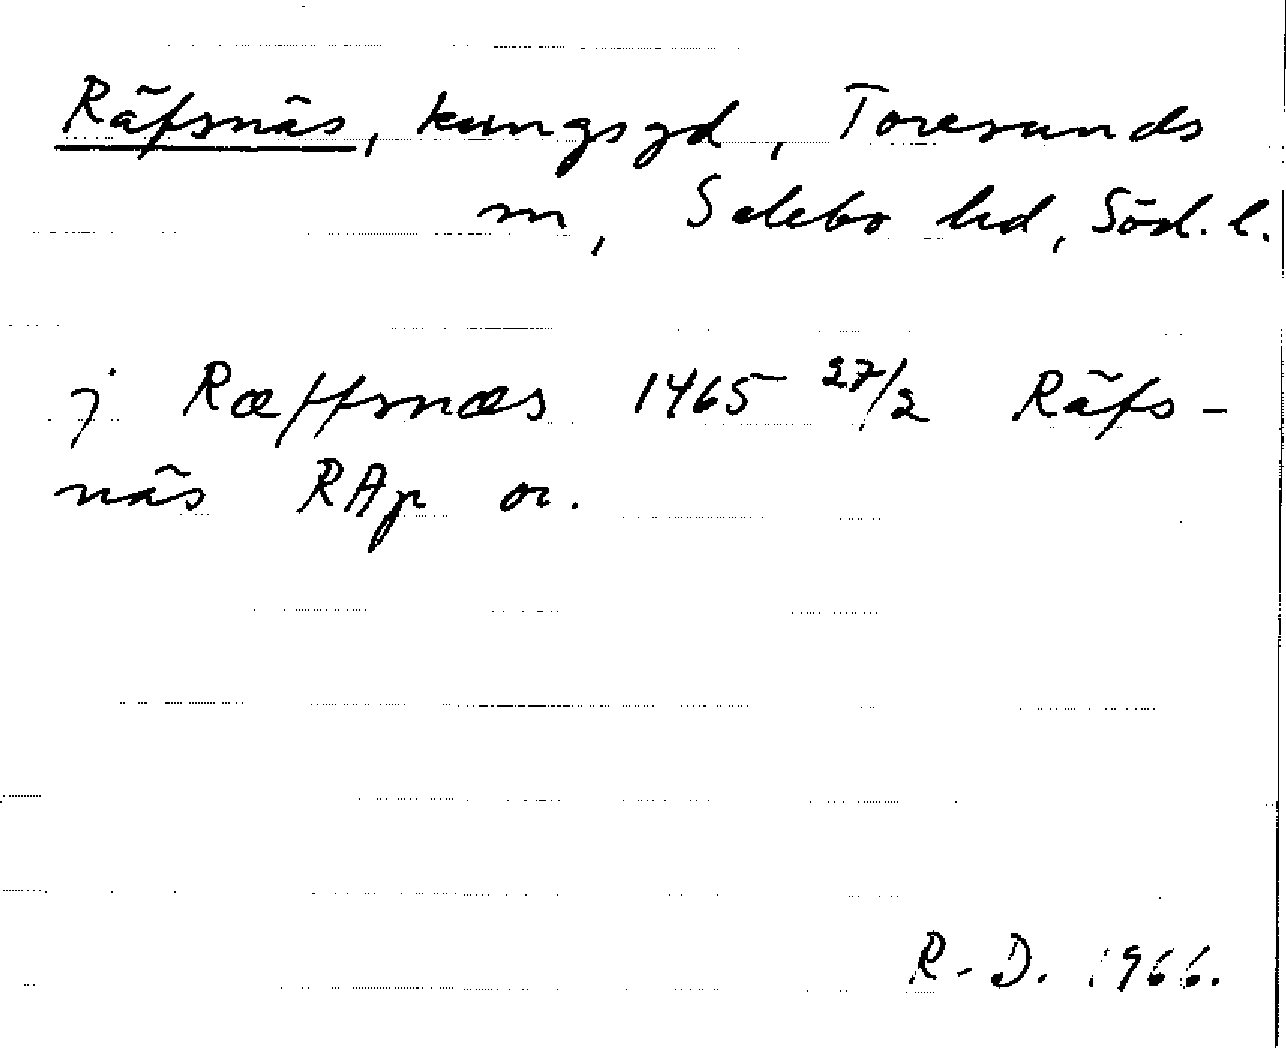 Räfsnäs, kungsgd, Toresunds
sn, Selebo hd, Söd. l.
j Ræffsnæs 1465 27/2 Räfs-
näs RAp or.
R-D. 1966.